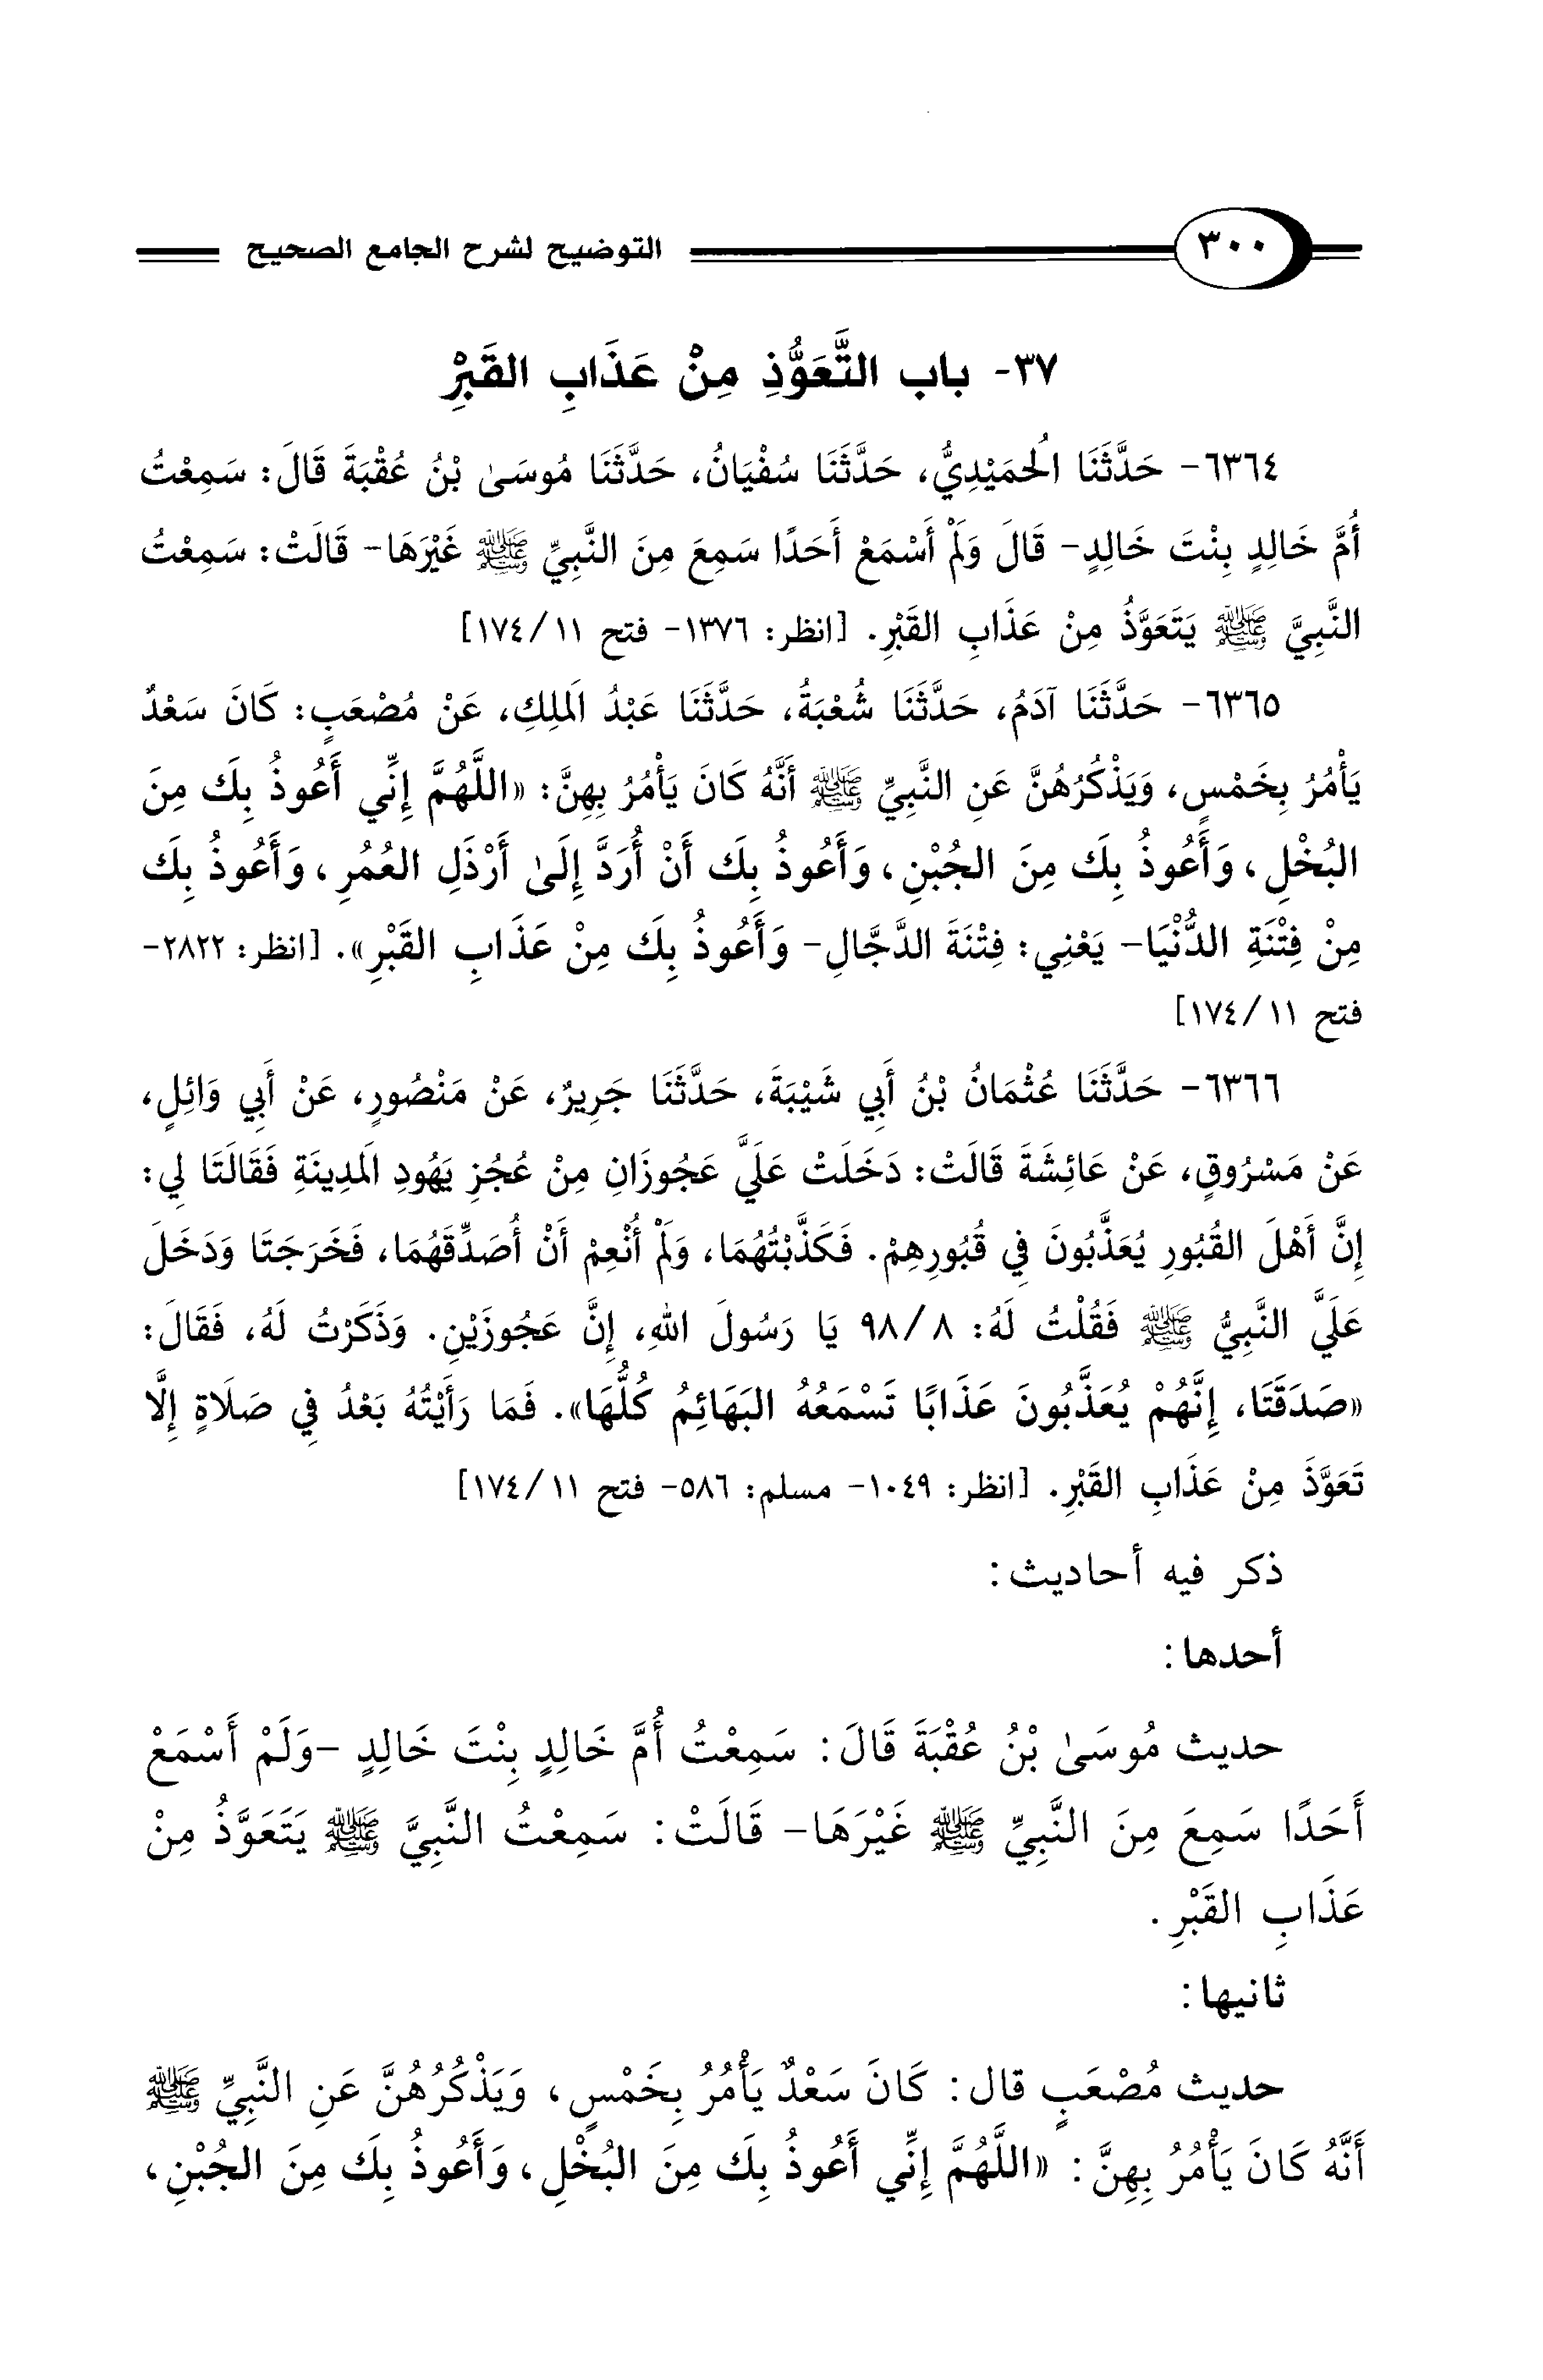 ٣٠٠ التوضيح لشرح الجامع الصحيح
٣٧- باب التَّعَوُّذِ مِنْ عَذَابِ القَبْرِ
٦٣٦٤- حَدَّثَنَا الُحمَيْدِيُّ، حَدَّثَنَا سُفْيَانُ، حَدَّثَنَا مُوسَىٰ بْنُ عُقْبَةَ قَالَ: سَمِعْتُ
أُمَّ خَالِدٍ بِنْتَ خَالِدٍ- قَالَ وَلَمْ أَسْمَعْ أَحَدًا سَمِعَ مِنَ النَّبِيِّ ﷺ غَيْرَهَا- قَالَتْ: سَمِعْتُ
النَّبِيَّ ﷺ يَتَعَوَّذُ مِنْ عَذَابِ القَبْرِ. [انظر: ١٣٧٦- فتح ١١/١٧٤]
٦٣٦٥- حَدَّثَنَا آدَمُ، حَدَّثَنَا شُعْبَةُ، حَدَّثَنَا عَبْدُ الَملِكِ، عَنْ مُصْعَبٍ: كَانَ سَعْدٌ
يَأْمُرُ بِخَمْسٍ، وَيَذْكُرُهُنَّ عَنِ النَّبِيِّ ﷺ أَنَّهُ كَانَ يَأْمُرُ بِهِنَّ: «اللَّهُمَّ إِنِّي أَعُوذُ بِكَ مِنَ
البُخْلِ، وَأَعُوذُ بِكَ مِنَ الجُبْنِ، وَأَعُوذُ بِكَ أَنْ أُرَدَّ إِلَىٰ أَرْذَلِ العُمُرِ، وَأَعُوذُ بِكَ
مِنْ فِتْنَةِ الدُّنْيَا- يَعْنِي: فِتْنَةَ الدَّجَّالِ- وَأَعُوذُ بِكَ مِنْ عَذَابِ القَبْرِ». [انظر: ٢٨٢٢-
فتح ١١/١٧٤]
٦٣٦٦- حَدَّثَنَا عُثْمَانُ بْنُ أَبِي شَيْبَةَ، حَدَّثَنَا جَرِيرٌ، عَنْ مَنْصُورٍ، عَنْ أَبِي وَائِلٍ،
عَنْ مَسْرُوقٍ، عَنْ عَائِشَةَ قَالَتْ: دَخَلَتْ عَلَيَّ عَجُوزَانِ مِنْ عُجُزِ يَهُودِ الَمدِينَةِ فَقَالَتَا لِي:
إِنَّ أَهْلَ القُبُورِ يُعَذَّبُونَ فِي قُبُورِهِمْ. فَكَذَّبْتُهُمَا، وَلَمْ أُنْعِمْ أَنْ أُصَدِّقَهُمَا، فَخَرَجَتَا وَدَخَلَ
عَلَيَّ النَّبِيُّ ﷺ فَقُلْتُ لَهُ: ٩٨/٨ يَا رَسُولَ اللهِ، إِنَّ عَجُوزَيْنِ. وَذَكَرْتُ لَهُ، فَقَالَ:
«صَدَقَتَا، إِنَّهُمْ يُعَذَّبُونَ عَذَابًا تَسْمَعُهُ البَهَائِمُ كُلُّهَا». فَمَا رَأَيْتُهُ بَعْدُ فِي صَلَاةٍ إِلَّا
تَعَوَّذَ مِنْ عَذَابِ القَبْرِ. [انظر: ١٠٤٩- مسلم: ٥٨٦- فتح ١١/١٧٤]
ذكر فيه أحاديث:
أحدها:
حديث مُوسَىٰ بْنُ عُقْبَةَ قَالَ: سَمِعْتُ أُمَّ خَالِدٍ بِنْتَ خَالِدٍ -وَلَمْ أَسْمَعْ
أَحَدًا سَمِعَ مِنَ النَّبِيِّ ﷺ غَيْرَهَا- قَالَتْ: سَمِعْتُ النَّبِيَّ ﷺ يَتَعَوَّذُ مِنْ
عَذَابِ القَبْرِ.
ثانيها:
حديث مُصْعَبٍ قال: كَانَ سَعْدٌ يَأْمُرُ بِخَمْسٍ، وَيَذْكُرُهُنَّ عَنِ النَّبِيِّ ﷺ
أَنَّهُ كَانَ يَأْمُرُ بِهِنَّ: «اللَّهُمَّ إِنِّي أَعُوذُ بِكَ مِنَ البُخْلِ، وَأَعُوذُ بِكَ مِنَ الجُبْنِ،